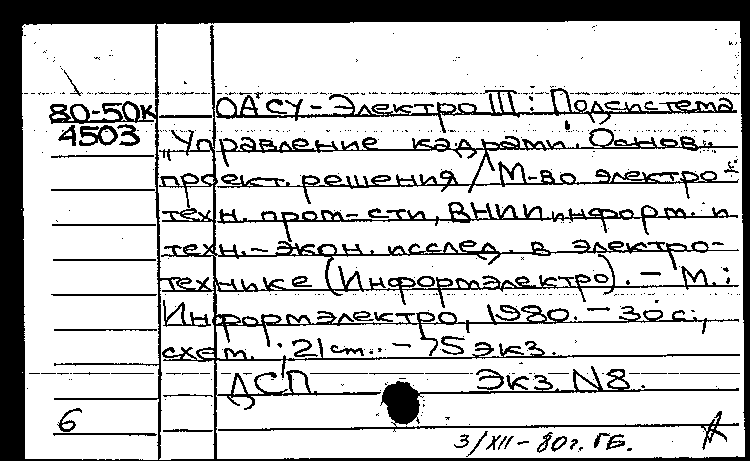 80-50к
4503
ОАСУ-Электро III: Подсистема
"Управление кадрами". Основ.
проект. решения / М-во электро-
техн. пром-сти, ВНИИ информ. и
техн.-экон. исслед. в электро-
технике (Информэлектро). - М.:
Информэлектро, 1980. - 30 с.,
схем. ; 21 cm. - 75 экз.
ДСП. Экз. N8.
6
3/XII-80г. ГБ.